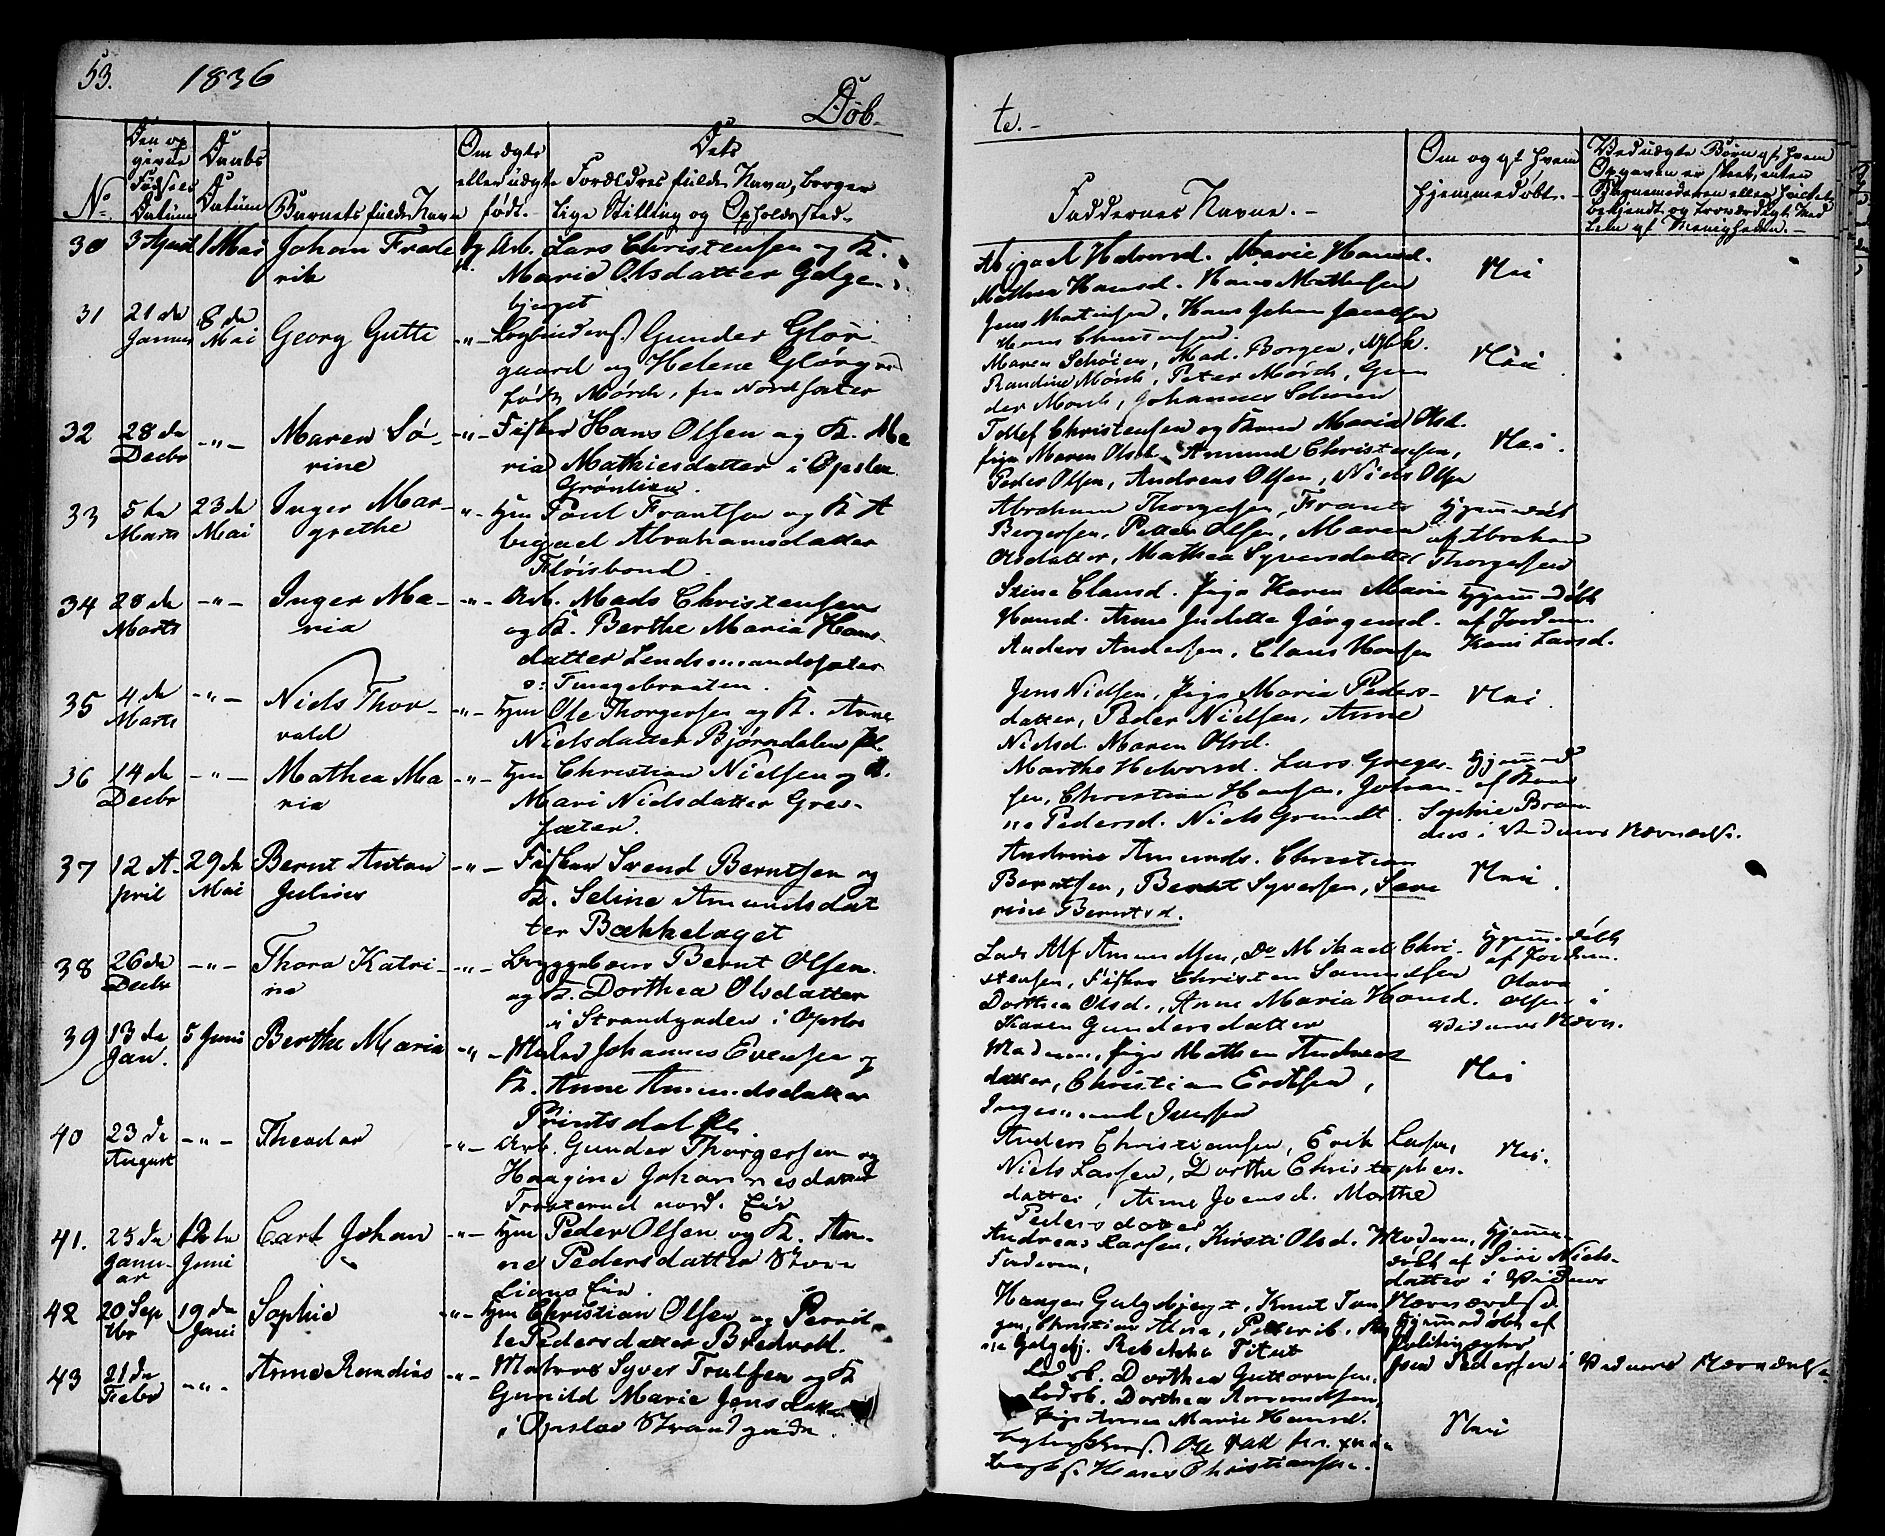 53. 1836
Døb-
te.-
No
Den op
givne
Fødsels
Datum
Daabs
Datum
Barnets fulde Navn
Om ægte
eller uægte
født.-
Dets
Forældres fulde Navn, borger
lige Stilling og Opholdssted.
Faddernes Navne.-
Om og af hvem
hjemmedøbt.-
Ved uægte Børn af hvem
Opgaven er skeet, enten
bekjendt og troværdigt Med
30 3 April 1 Mai Johan Frede
rik
Arb. Lars Christensen og K.
Marie Olsdatter Galge-
bjerget
Abigael Halvorsd. Marie Hansd.
Mathea Hansd. Hans Mathesen
Jens Martinsen, Hans Johan Jacobsen
Hans Christensen
Nei
31 21 de
Januar
8 de
Mai
Georg Gutte -"-
Gunder Glør-
gaard og Helene Glørgaard
født Mörch, fra Nordsæter
Maren Schøien, Mad. Borgen,
Randine Mörch, Peter Mörch, Gun
der Mörch, Johannes
Nei
32 28 de
Decbr
-"- Maren Sø-
rine
-"- Fisker Hans Olsen og K. Ma
ria Mathiesdatter i Opslo
Grønlien.
Tollef Christensen og Kone Maria Olsd.
pige Maren Olsd. Amund Christensen,
Peder Olsen, Andreas Olsen, Niels Olsen
Nei.
33 5 de
Marts
23 de
Mai
Inger Mar-
grethe
-"- Hm Poul Frantsen og K A
begael Abrahamsdatter
Fløisbond.
Abraham Thorgersen, Frants
Bergersen, Petter Olsen, Maren
Olsdatter, Mathea Syversdatter
Hjemmedøbt
af Abraham
Thorgersen
34 28 de
Marts
-"- Inger Ma-
ria
-"- Arb. Mads Christensen
og K. Berthe Maria Hans-
datter Lendsmandssæter
o: Tungebraaten.
Stine Clausd. Pige Karen Marie
Hansd. Anne Judetta Jörgensd.
Anders Andersen, Claus Hansen
Hjemmedøbt
af Jordem.
Kari Larsd.
35 4 de
Marts
-"- Niels Thor-
vald
-"- Hm Ole Thorgersen og K. Anne
Nielsdatter Bjørndalen pl.
Jens Nielsen, Pige Maria Peders-
datter, Peder Nielsen, Anne
Nielsd. Maren Olsd.
Nei.
36 14 de
Decbr
-"- Mathea Ma
ria
-"- Hm Christian Nielsen og K.
Mari Nielsdatter Gres-
sæter.
Marthe Halvorsd. Lars Greger-
sen, Christian Hansen, Johan-
ne Pedersd. Niels Grundt.
Hjemmed
af Kone
Sophie Bran
ders i Vidners Nærværelse.
37 12 A-
pril
29 de
Mai
Bernt Anton
Julius
-"- Fisker Svend Berntsen og
K. Seline Amundsdat
ter Bækkelaget
Andrine Amunds. Christian
Berntsen, Bernt Syversen, Seve
rine Berntsd.
Nei.
38 26 de
Decbr
-"- Thora Katri-
ne
-"- Bryggebom Bernt Olsen
og K. Dorthea Olsdatter
i Strandgaden i Opslo
Lods Alf Amundsen, Do Mikael Chri-
stensen, Fisker Christen Samuelsen
Dorthea Olsd., Anne Maria Hansd.
Karen Gundersdatter
Hjemmedøbt
af Jordem.
Olava
Olsen i
Vidners Nærv.
39 13 de
Jan.
5 Juni Berthe Maria -"-
Johannes Evensen og
K. Anne Amundsdatter
Printsdal pl.
Moderen, pige Mathea Anders
datter, Christian Eriksen,
Ingemund Jensen
Nei
40 23 de
August
-"- Theodor -"- Arb. Gunder Thorgersen og
Haagine Johannesdatter
Træterud nord. Eir
Anders Christiansen, Erik Larsen,
Niels Larsen, Dorthe Christopher-
datter, Anne Joensd. Marthe
Pedersdatter
Nei.
41. 25 de
Janu-
ar
12te
Juni
Carl Johan -"- Hm Peder Olsen og K. An-
ne Pedersdatter
Eir.
Andreas Larsen, Kirsti Olsd. Moderen,
Faderen,
Hjemme-
døbt af Siri Niels-
datter i Vidners
Nærværelse.
42 20 Sep
tbr
19 de
Juni
Sophie -"- Hm Christian Olsen og Pernil-
le Pedersdatter Bredvold.
Haagen Galgebjerget, Knut
Christian
Galgebj. Rebekka Titut
Hjemmedøbt af
Politibetjent
Pedersen i Vidners Nærværelse.
43 21 de
Febr
-"- Anne Randine -"- Matros Syver Trulsen og K
Gunild Marie Jensdatter
i Opslo Strandgade.
Lodsk. Dorthea Guttormsen,
Lodsk. Dorthea Amundsen,
Pige Anne Marie Hansd.
Hans Christiansen.
Nei